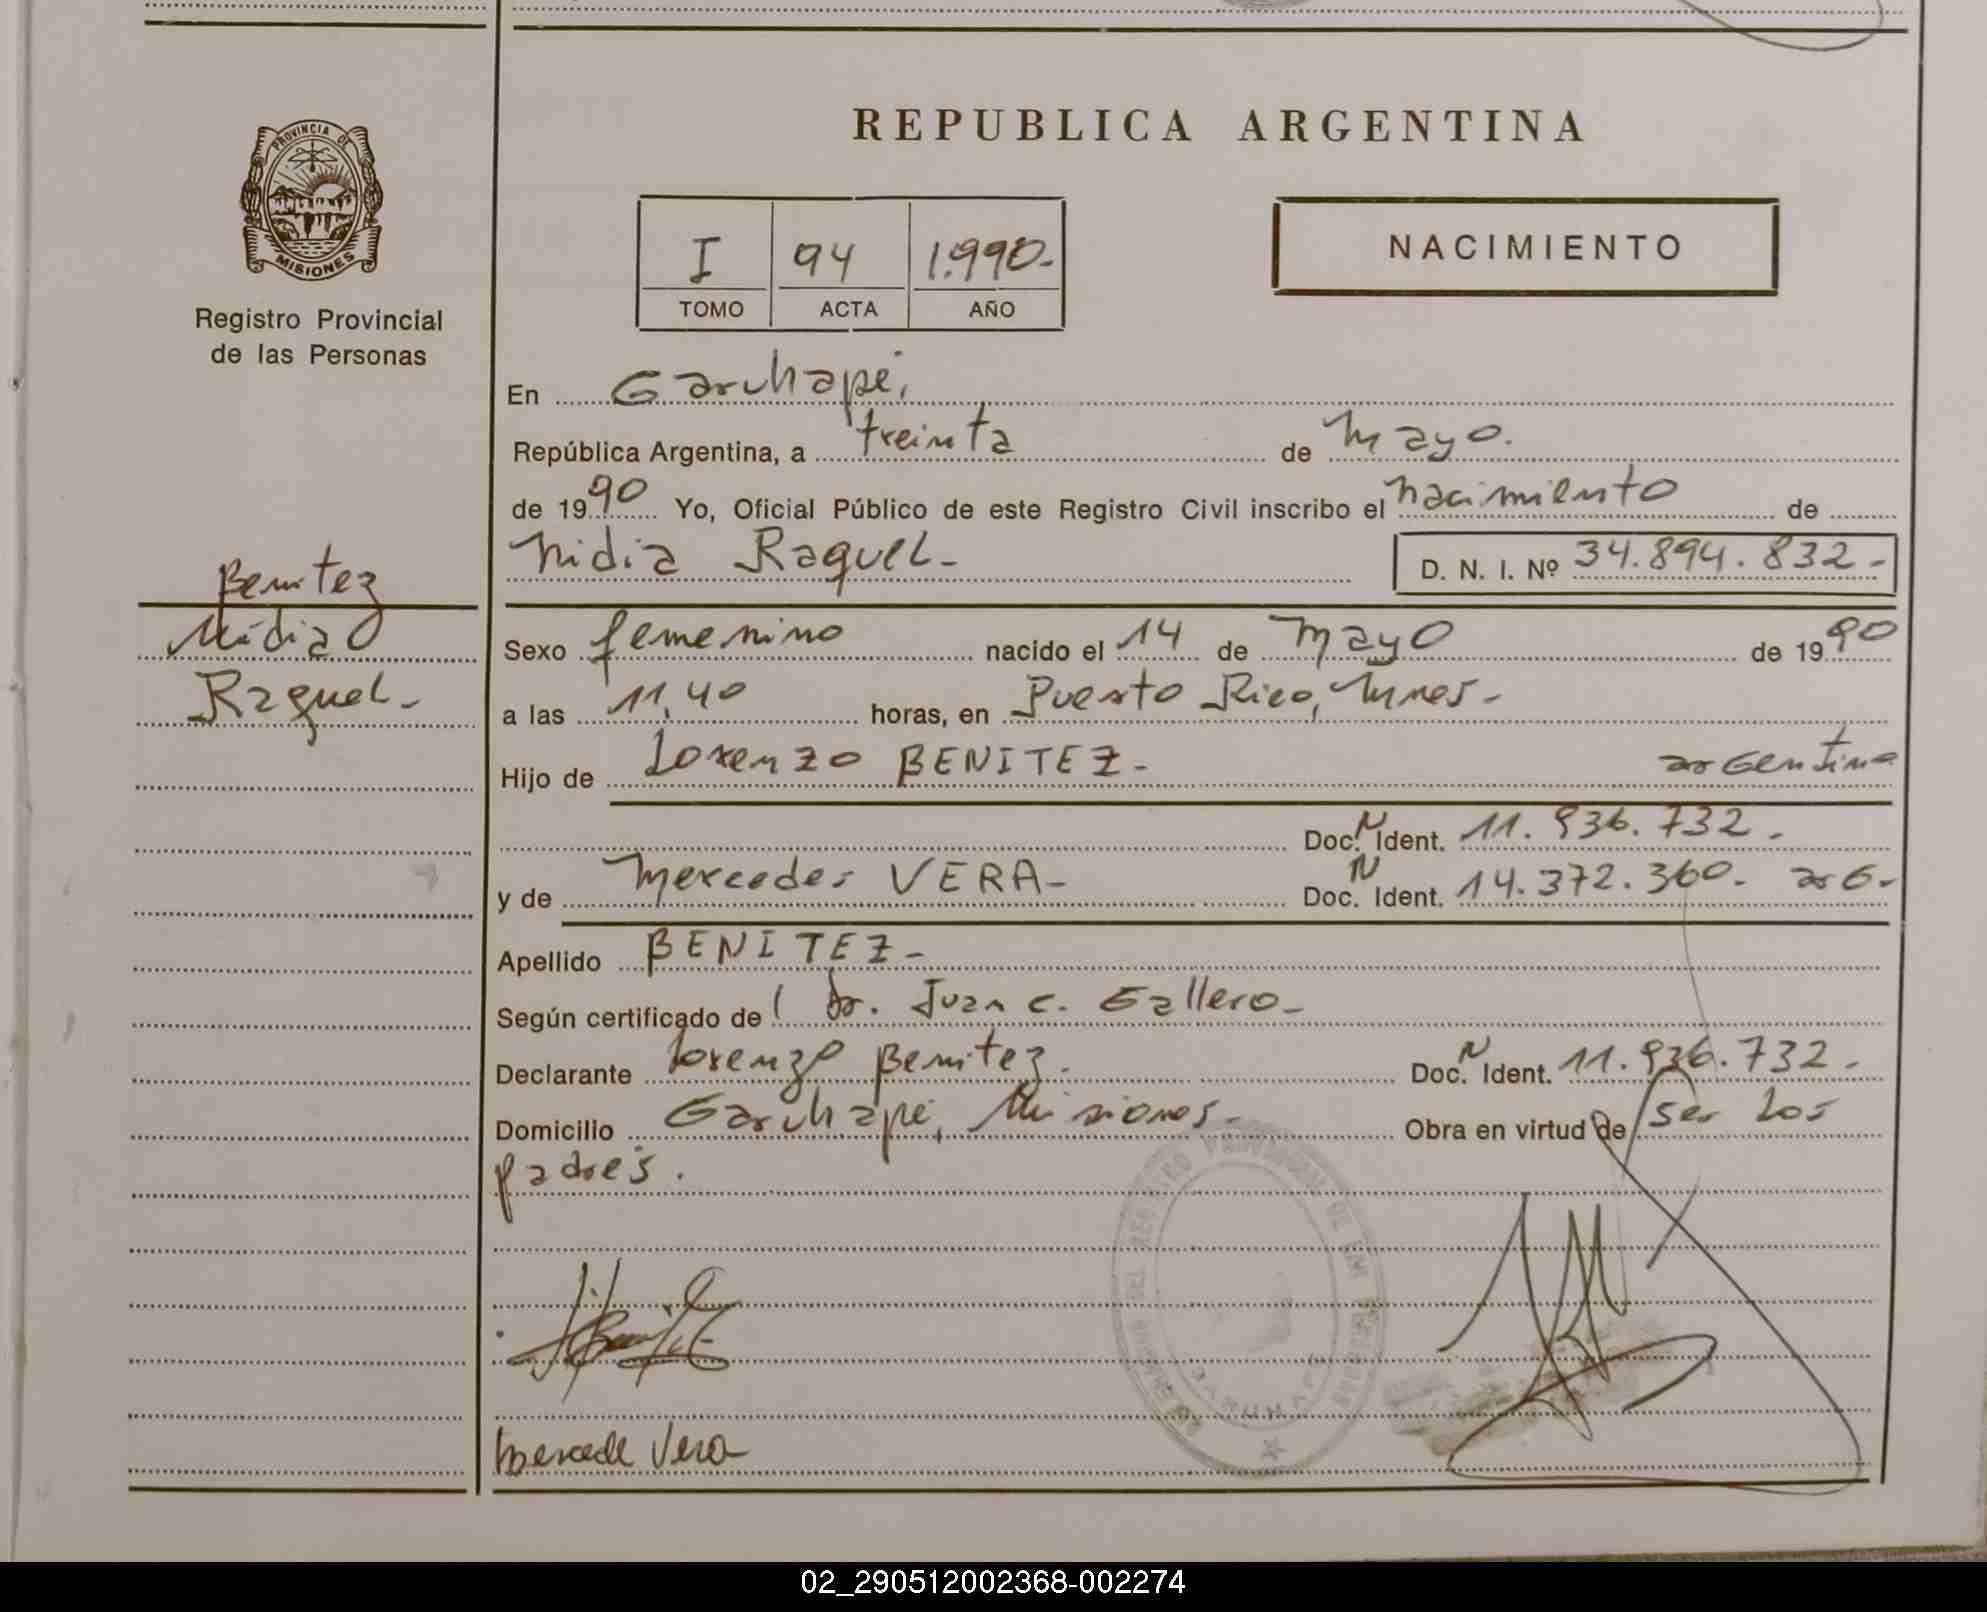 REPUBLICA ARGENTINA
PROVINCIA DE
MISIONES
Registro Provincial
de las Personas
I 94 1.990.-
TOMO ACTA AÑO
NACIMIENTO
En Garuhapé,
República Argentina, a treinta de Mayo.
de 1990 Yo, Oficial Público de este Registro Civil inscribo el nacimiento de
Nidia Raquel.- D. N. I. Nº 34.894.832-
Benitez
Nidia
Raquel-
Sexo femenino nacido el 14 de Mayo de 1990
a las 11,40 horas, en Puerto Rico, Mnes.-
Hijo de Lorenzo BENITEZ.- argentino
Doc. N Ident. 11.936.732.
y de Mercedes VERA- Doc. N Ident. 14.372.360. arG.-
Apellido BENITEZ.-
Según certificado del Dr. Juan C. Gallero.-
Declarante Lorenzo Benitez. Doc. N Ident. 11.936.732.
Domicilio Garuhapé, Misiones.- Obra en virtud de ser los
padres.
Mercede Vera
02_290512002368-002274